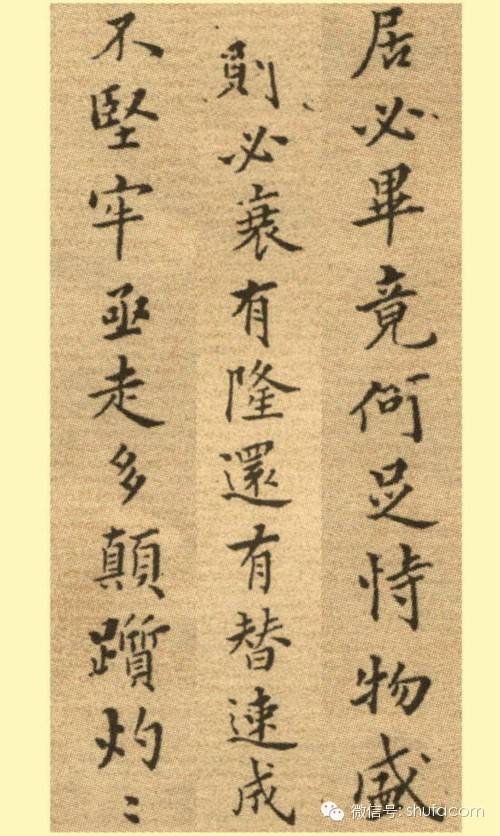 居必畢竟何足恃物盛
則必衰有隆還有替速成
不堅牢亟走多顛躓灼〻
微信号: shufacom